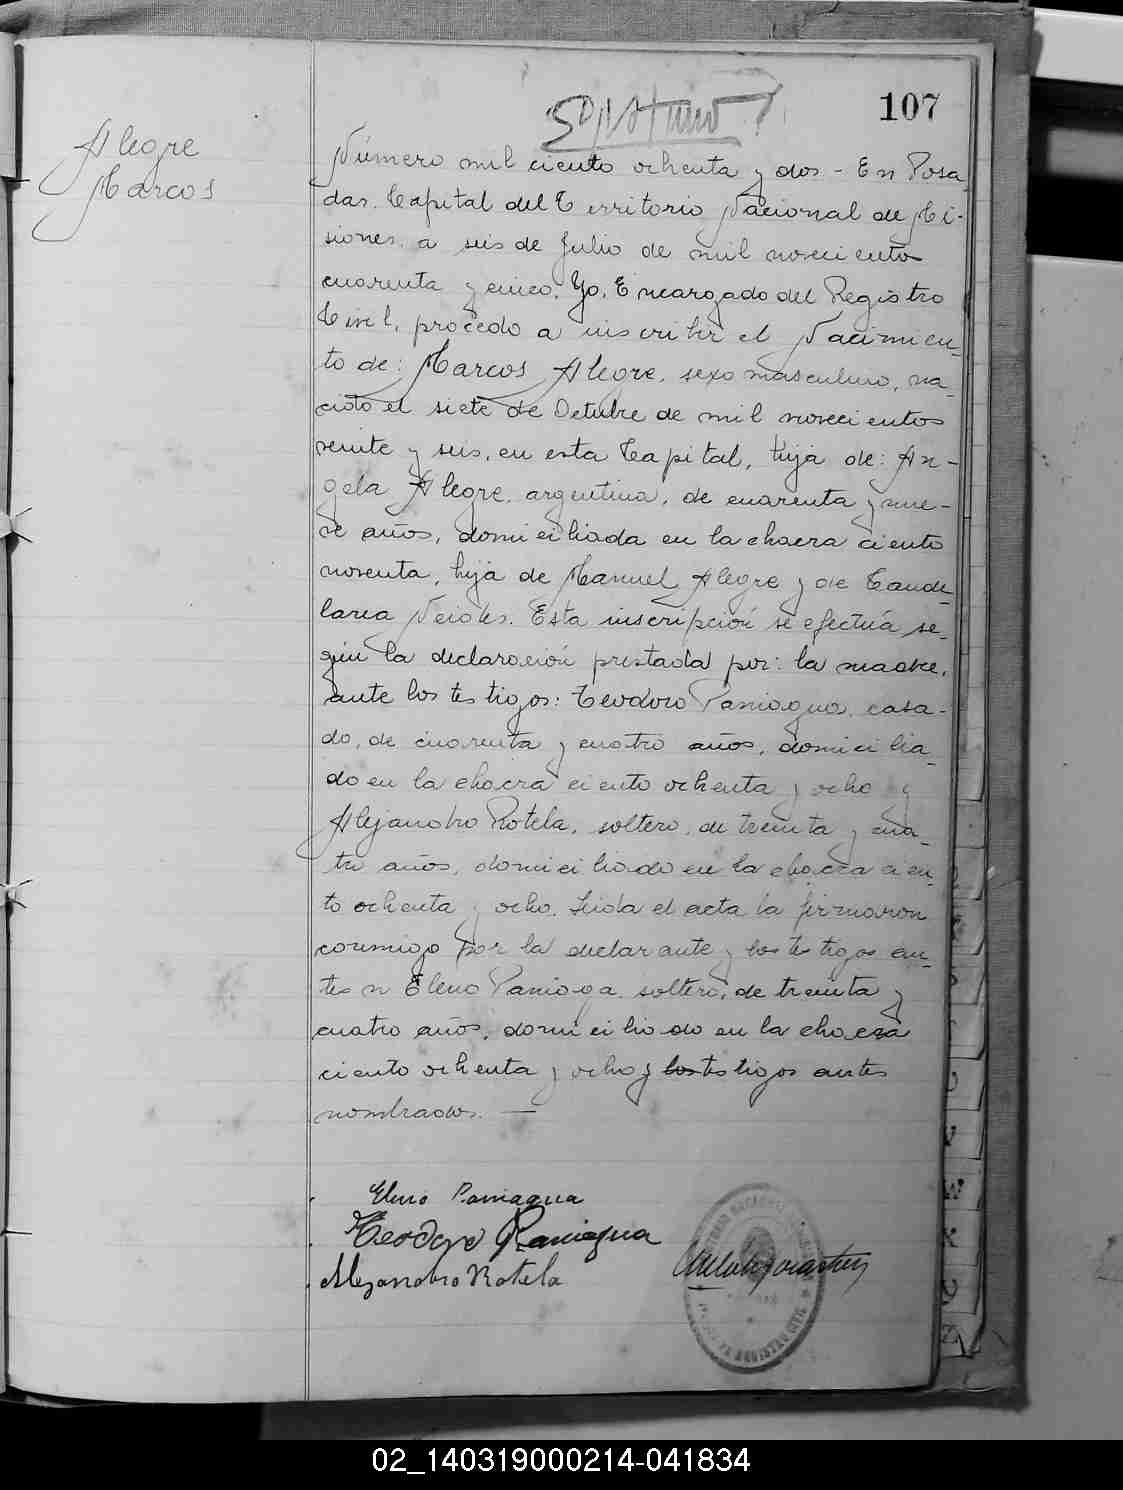 107
Alegre
Marcos
Número mil ciento ochenta y dos - En Posa_
das. Capital del Territorio Nacional de Mi-
siones, a seis de Julio de mil novecientos
cuarenta y cinco. Yo, Encargado del Registro
Civil, procedo a inscribir el Nacimien_
to de: Marcos Alegre, sexo masculino, na_
cido el siete de Octubre de mil novecientos
veinte y seis, en esta Capital, hija de: An-
gela Alegre, argentina, de cuarenta y nue-
ve años, domiciliada en la chacra ciento
noventa, hija de Manuel Alegre y de Cande_
laria. Esta inscripción se efectúa se_
gún la declaración prestada por: la madre,
ante los testigos: Teodoro Paniagua, casa-
do, de cuarenta y cuatro años, domicilia_
do en la chacra ciento ochenta y ocho y
Alejandro Rotela, soltero, de treinta y cua_
tro años, domiciliado en la chacra cien_
to ochenta y ocho. Leida el acta la firmaron
conmigo por la declarante y los testigos an_
tes n Eleno Paniaga, soltero, de treinta y
cuatro años, domiciliado en la chacra
ciento ochenta y ocho y los testigos antes
nombrados. —
Eleno Paniagua
Teodoro Paniagua
Alejandro Rotela
REGISTRO CIVIL
02_140319000214-041834